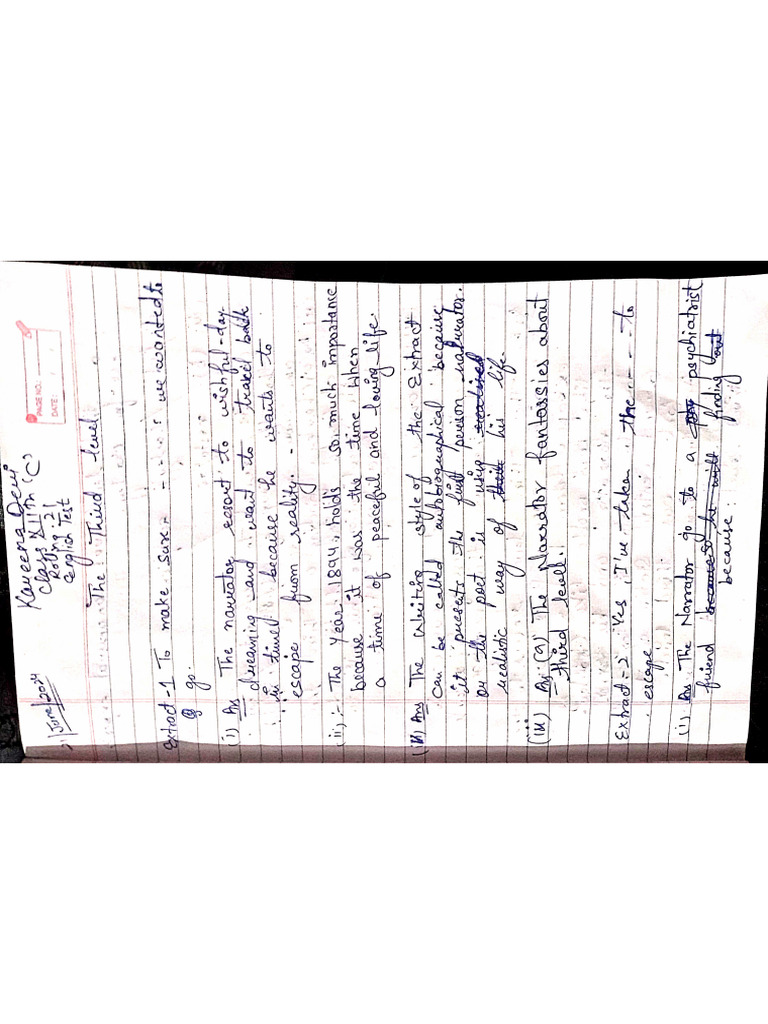 21/June/2024
Kaveena Devi
Class XIIth (C)
Rollno. 21
English Test
PAGE NO.
DATE:
The Third level.
Extract-1 To make sure - - - - - we wanted to
go.
(i) Ans The narrator resort to wishful-day
dreaming and want to travel back
in time because he wants to
escape from reality. -
ii) :- The year, 1894, holds so much importance
because it was the time when
a time of peaceful and loving life.
(iii) Ans The Writing style of the Extract
can be called autobiographical because
it presents the first person naturator.
or the poet is using realised
realistic way of their his life
(iii) Ans: (a) The Narrator fantassies about
third level.
Extract-2 Yes, I've taken the - - - - to
escape.
i) Ans The Narrator go to a psychiatrist
friend because so he will finding out
because: